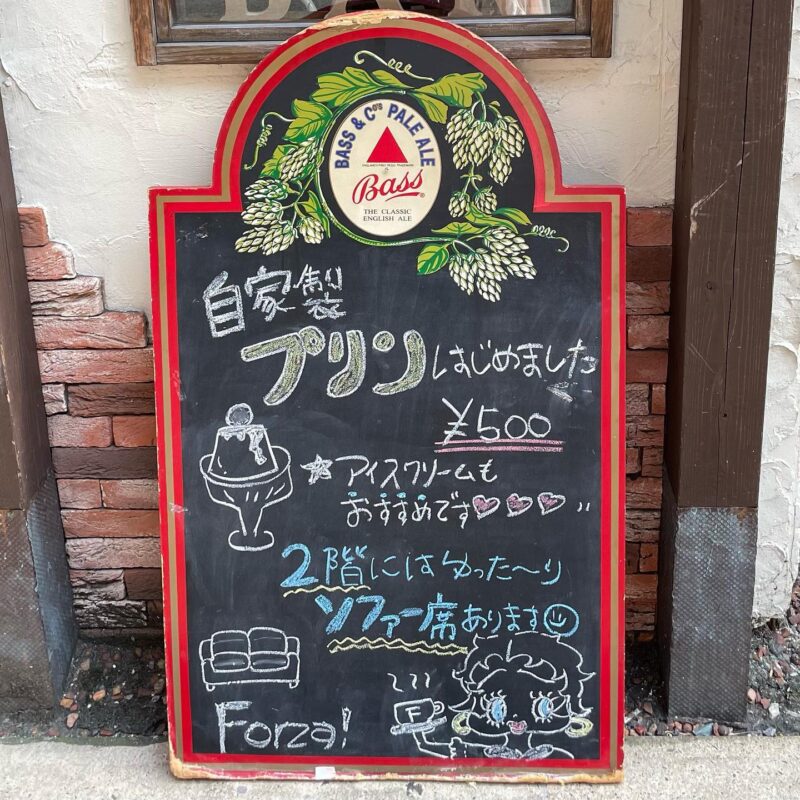 BASS & Co's PALE ALE
Bass
THE CLASSIC
ENGLISH ALE
自家製
プリンはじめました
¥500
☆アイスクリームも
おすすめです♡♡♡〃
2階にはゆった〜り
ソファー席あります
F
Forza!